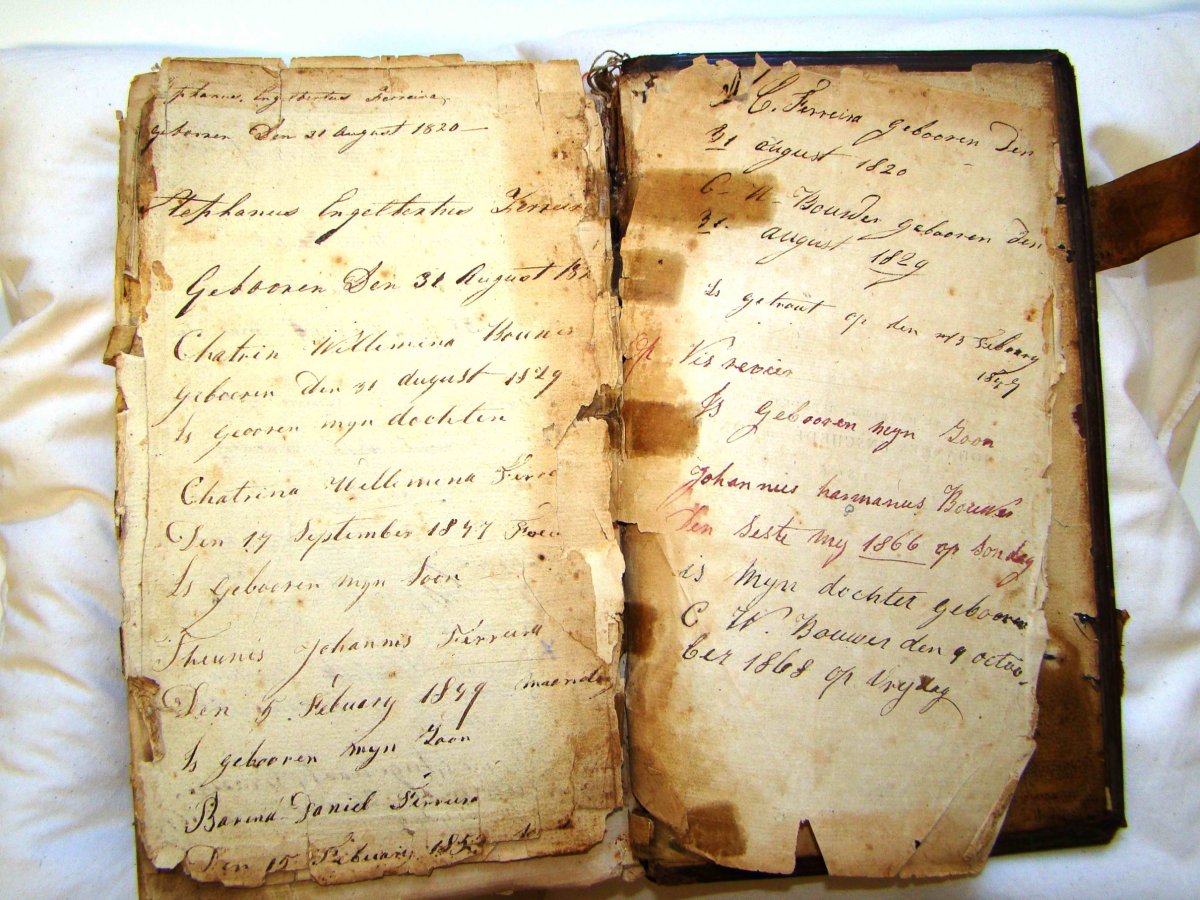 Engelbertus Ferreira
gebooren Den 31 August 1820
Stephanus Engelbertus Ferreira
Gebooren Den 31 August 18
Chatrin Willemina Bouwer
geboeren den 31 august 1829
Is geooren myn dochter
Chatrina Willemina Ferre
Den 17 September 1847
Is gebooren myn Soon
Theunis Johannis Ferreira
Den 5 Febuary 1849 maandag
Is gebooren myn Zoon
Barend Daniel Ferreira
Den 15 Febuary 185
C. Ferreira gebooren Den
31 august 1820
C W Bouwer gebooren den
31 august 1829
Is getrout op den Febuary
1847
op Vis revier
Is Gebooren myn Zoon
Johannes harmanus Bouwer
Den Seste my 1866 op Sondag
is Myn dochter gebooren
C W. Bouwer den 9 octoo-
ber 1868 op Vrydag